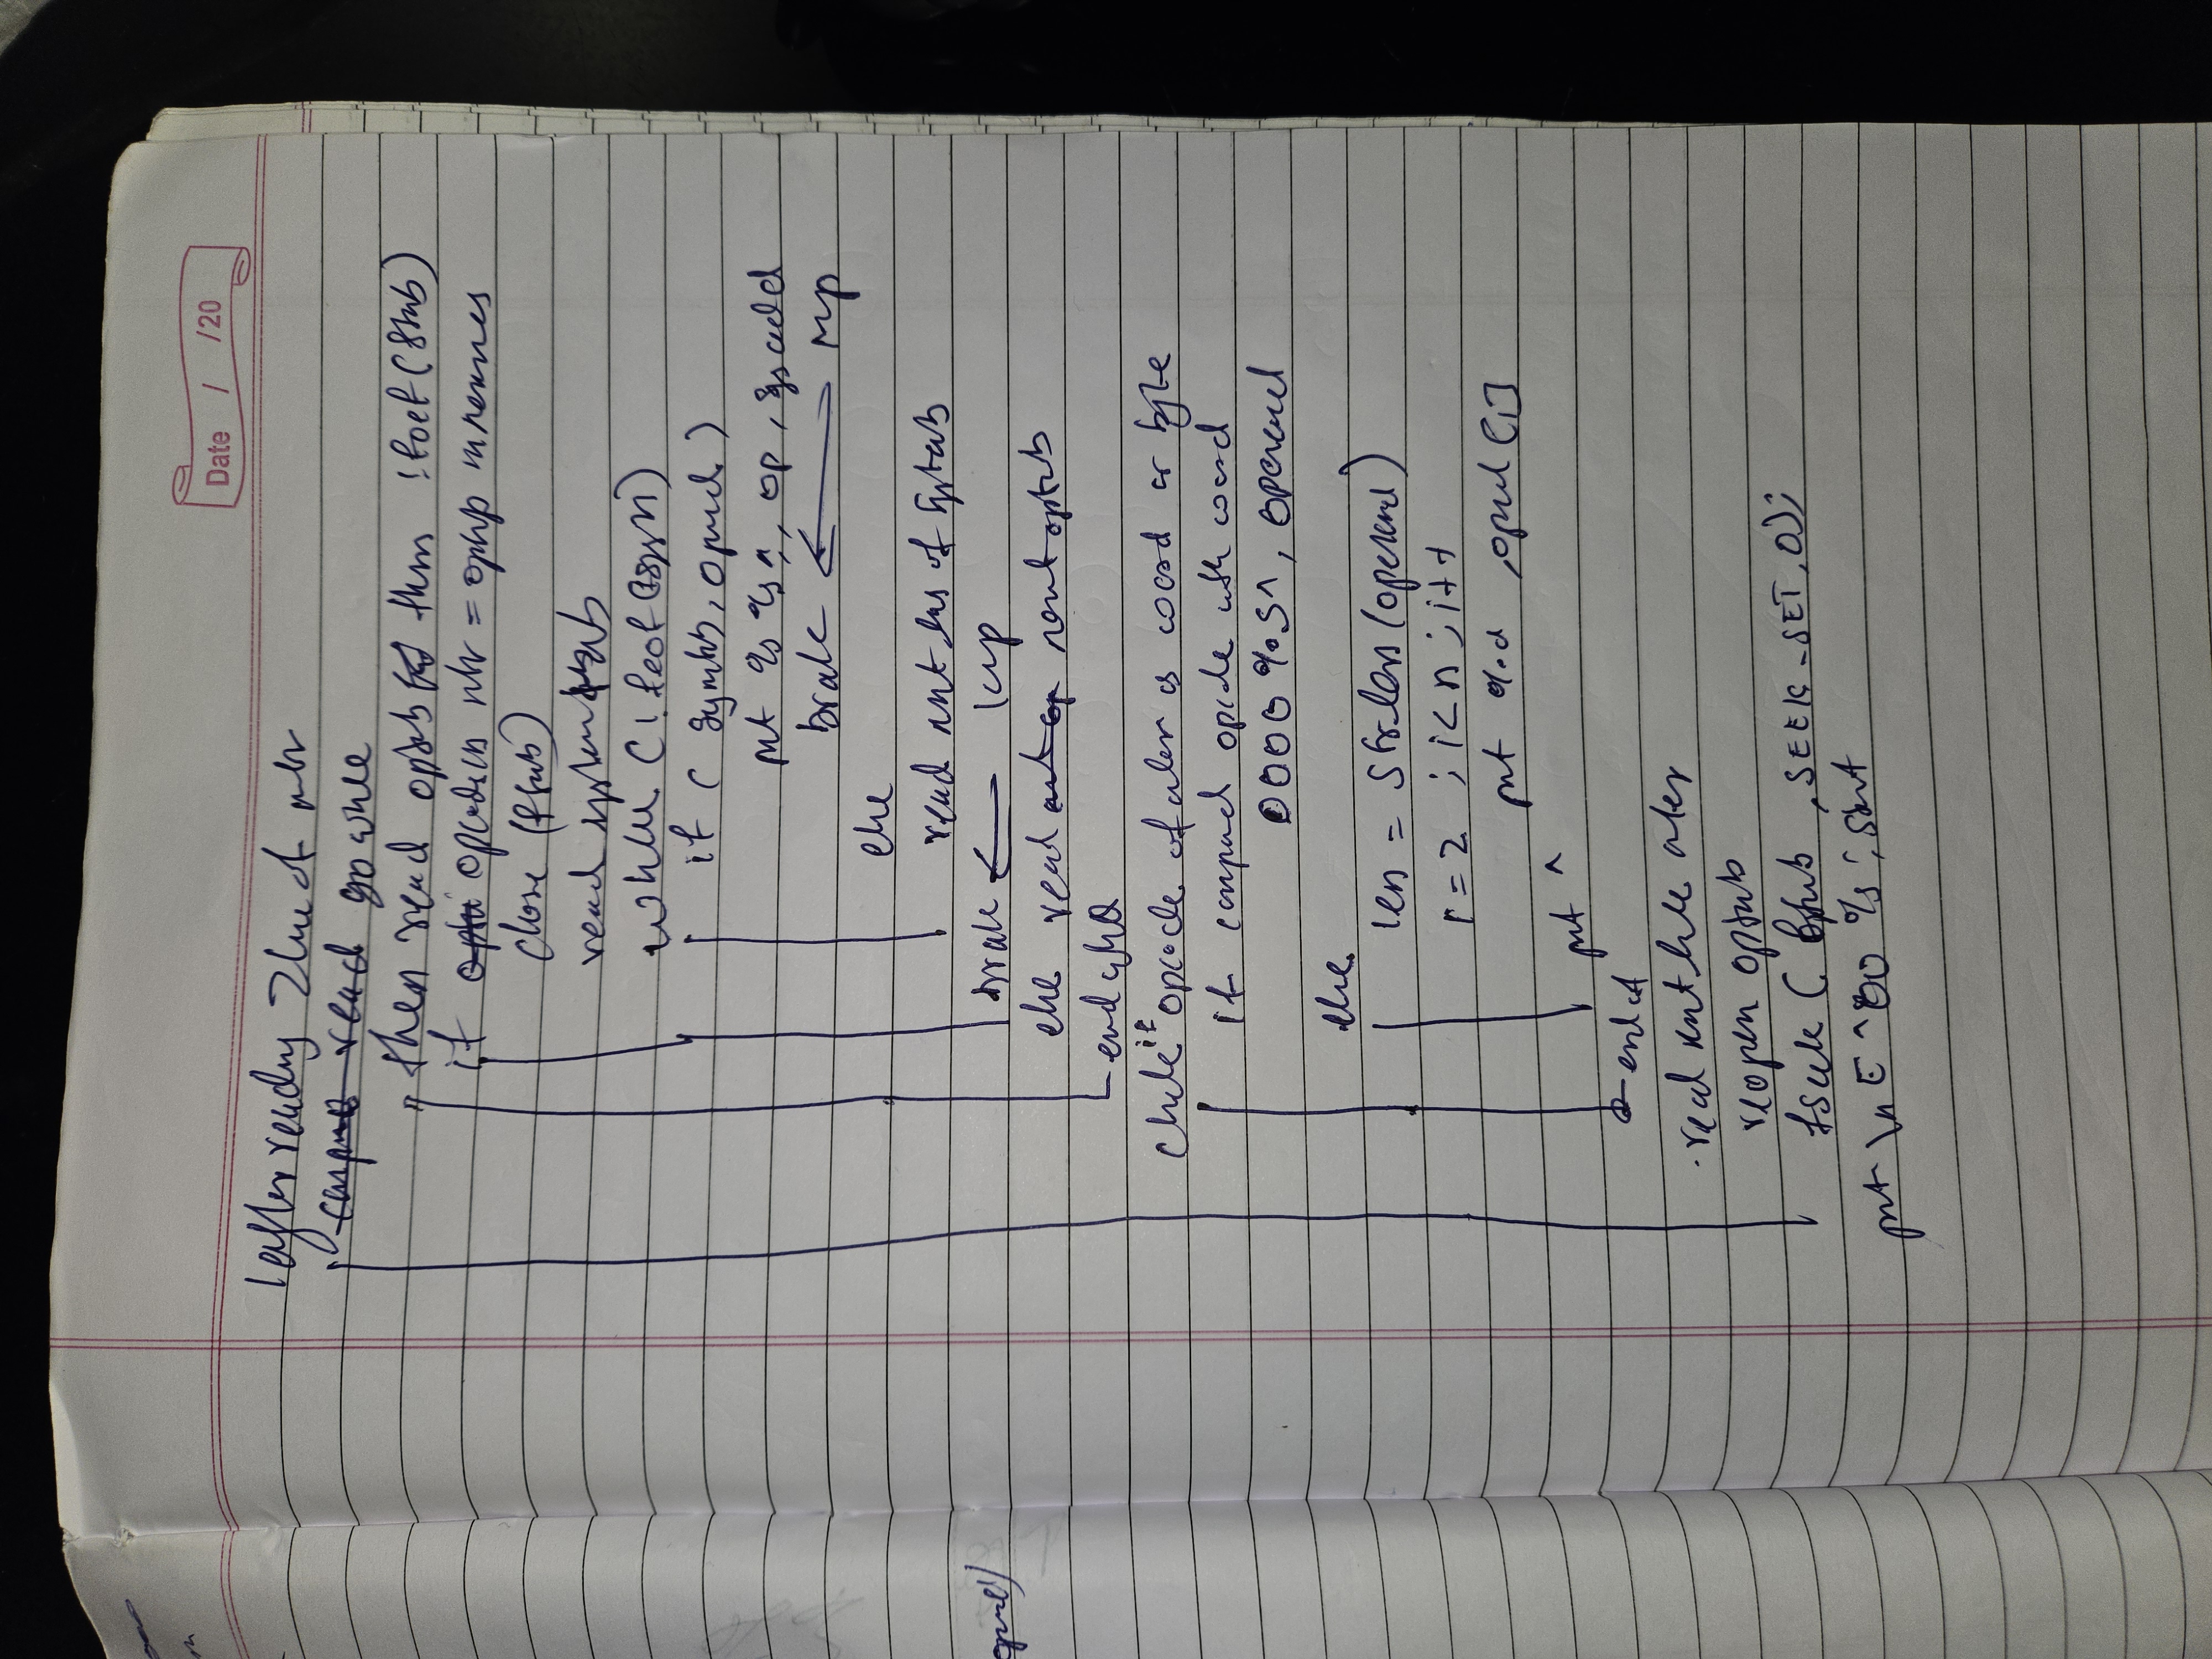 Date / /20
after reading 2 line of
read go while
then read optab then !feof(ftab)
if = optab mnemonics
close (ftab)
read
while (!feof(fsym)
if ( symtab, opernd )
put %s %s^, op, sysadd
brake ← imp
else
read next line of Systab
brake ← imp
else read next optab
end while
check if opcode of inter is word or byte
if compared opcode with word
0000%s^, operand
else
len = strlen(operand)
i=2 ; i<n ; i++
put %d ,opernd [i]
put ^
end if
read next line inter
reopen optab
fseek ( optab , SEEK_SET, 0);
put \n E^00 %s ; start
opernd)